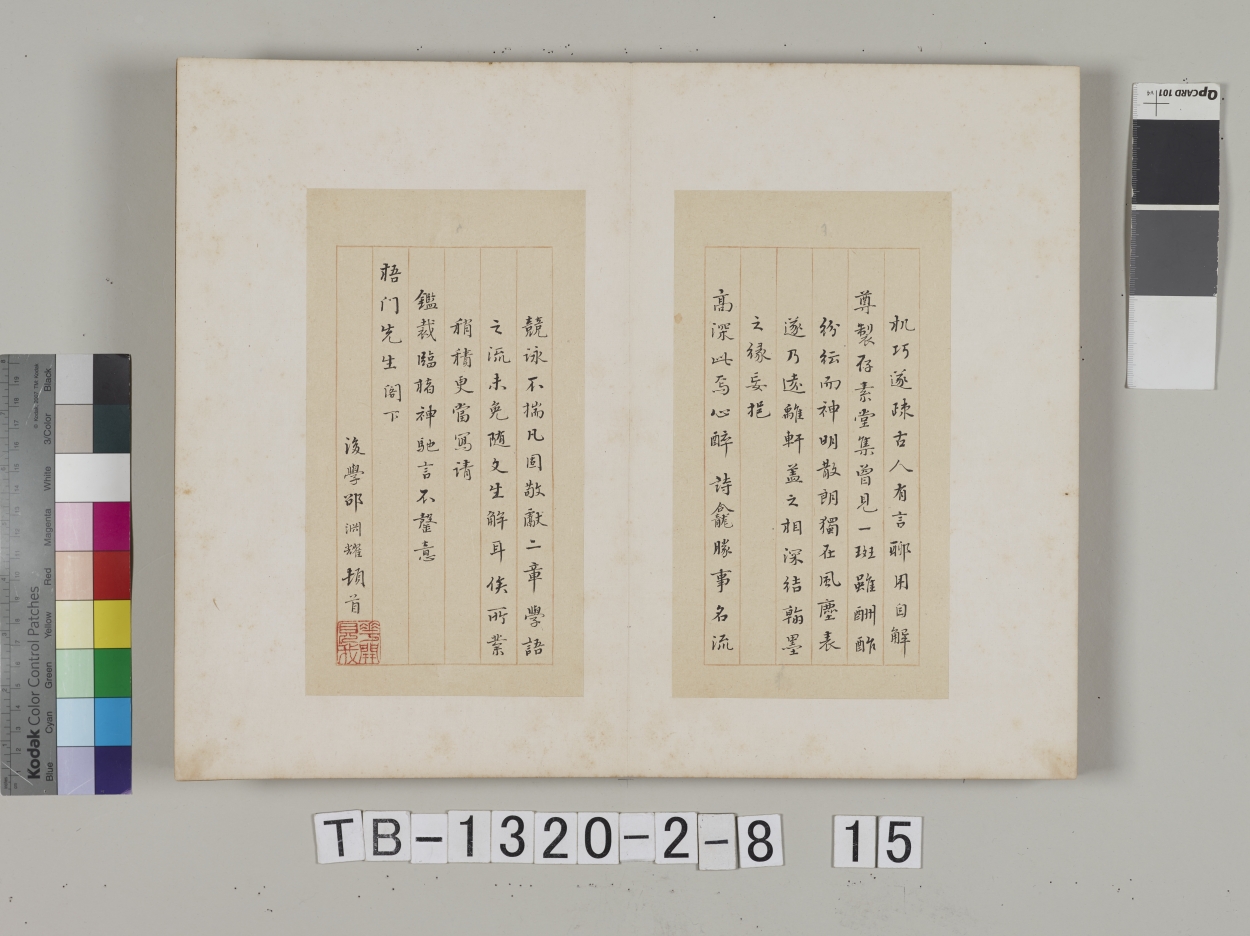 机巧遂疎古人有言聊用自解
尊製存素堂集曾見一斑雖酬酢
紛紜而神明散朗獨在風塵表
遂乃遠離軒蓋之相深結翰墨
之緣妄挹
高深此焉心醉 詩龕勝事名流
競詠不揣凡固敬獻二章學語
之流未免隨文生解耳俟所業
稍積更當寫请
鑑裁臨楮神馳言不罄意
梧门先生阁下
後學邵淵耀頓首
QPCARD 101 v4
Kodak Color Control Patches
© Kodak, 2007 TM: Kodak
Blue Cyan Green Yellow Red Magenta White 3/Color Black
TB-1320-2-8 15